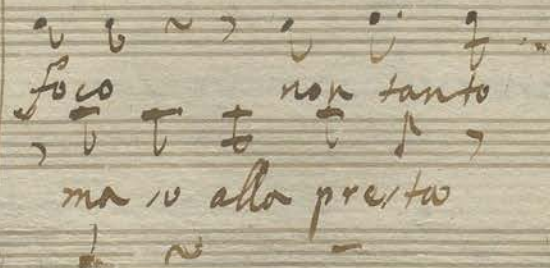 foco non tanto
ma io alla presta